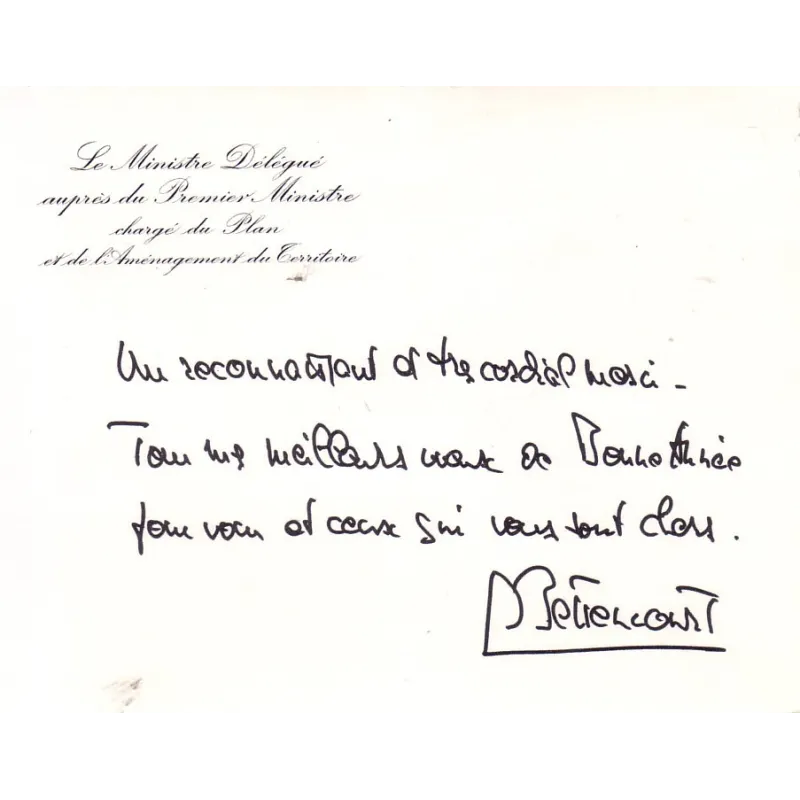 Le Ministre Délégué
auprès du Premier Ministre
chargé du Plan
et de l'Aménagement du Territoire
Un reconnaissant et très cordial merci -
Tous mes meilleurs vœux de Bonne Année
pour vous et ceux qui vous sont chers.
Bettencourt